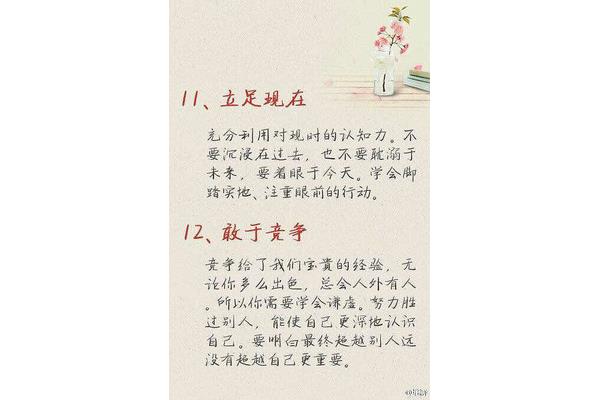 11、立足现在
充分利用对现时的认知力。不
要沉浸在过去，也不要耽溺于
未来，要着眼于今天。学会脚
踏实地、注重眼前的行动。
12、敢于竞争
竞争给了我们宝贵的经验，无
论你多么出色，总会人外有人
。所以你需要学会谦虚。努力胜
过别人，能使自己更深地认识
自己。要明白最终超越别人远
没有超越自己更重要。